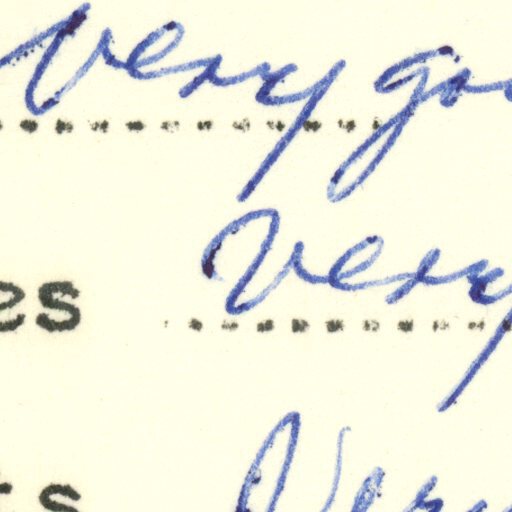 very
es Very
ts Very